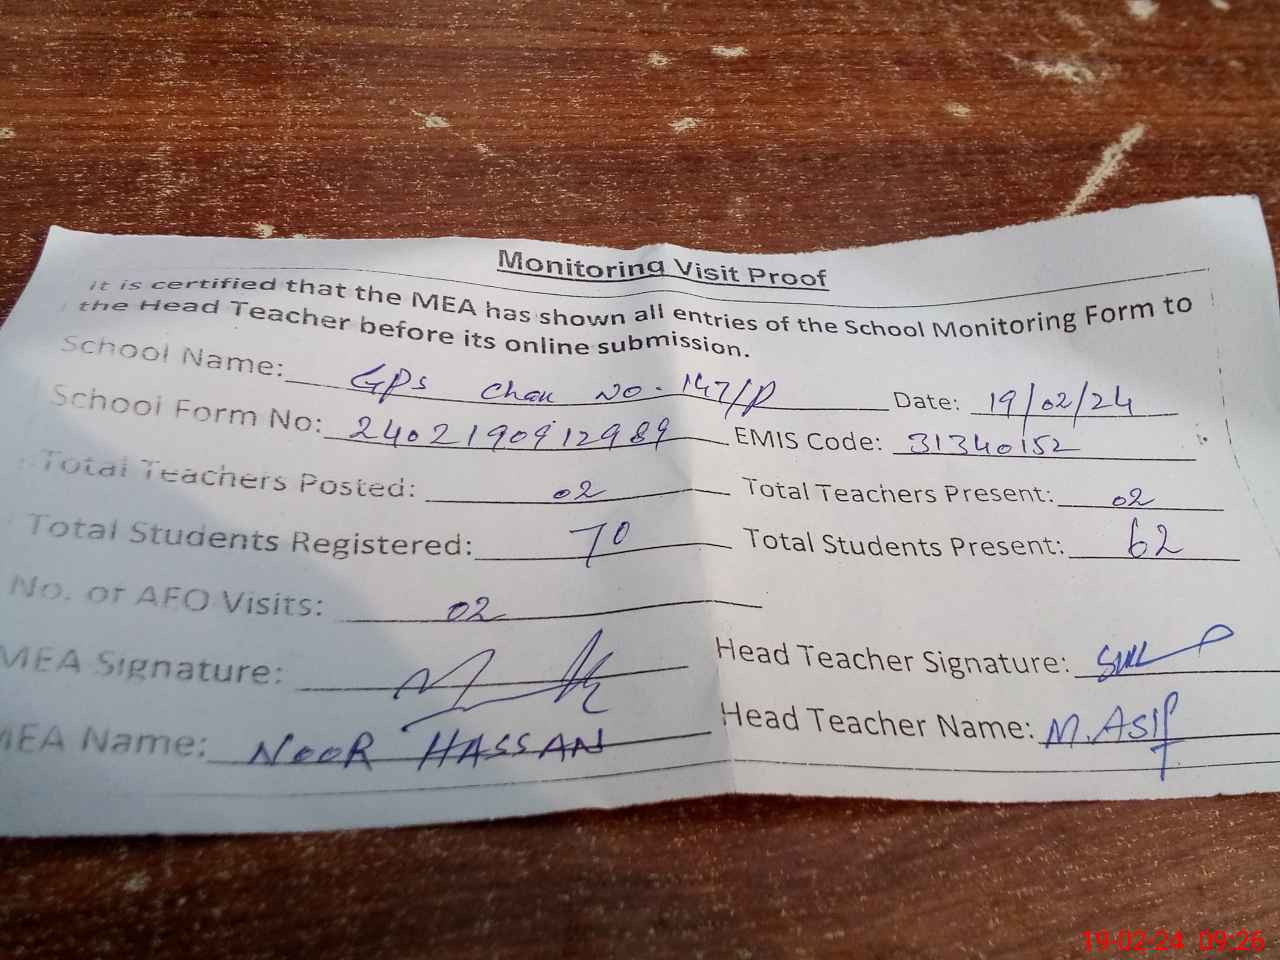 Monitoring Visit Proof
It is certified that the MEA has shown all entries of the School Monitoring Form to
the Head Teacher before its online submission.
School Name: GPS Chak No. 147/P Date: 19/02/24
School Form No: 2402190912989 EMIS Code: 31340152
Total Teachers Posted: 02 Total Teachers Present: 02
Total Students Registered: 70 Total Students Present: 62
No. of AEO Visits: 02
MEA Signature: Head Teacher Signature:
MEA Name: NOOR HASSAN Head Teacher Name: M. ASIF
19-02-24 09:26